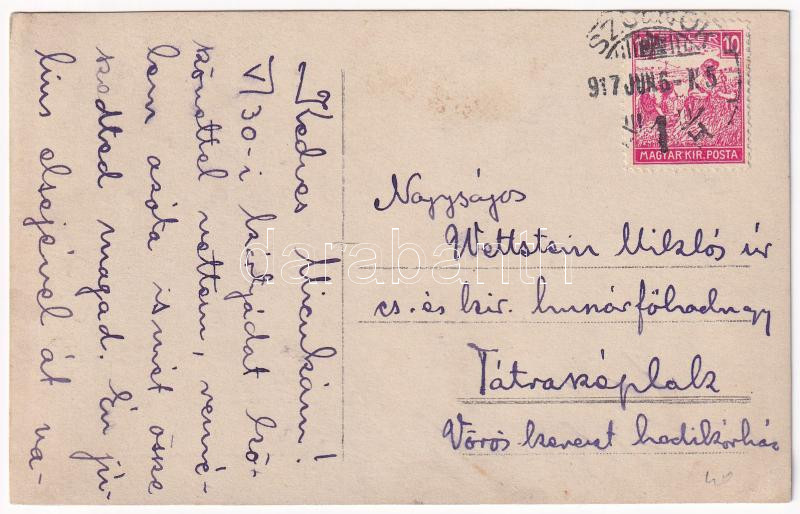 Kedves Micukám!
V/30-i kártyádat kö-
szönettel vettem, remé-
lem azóta ismét össze
szedted magad. Én jú-
lius elsejével át va-
SZOLNOK
917 JUN. 6 - N 5
1
10
MAGYAR KIR. POSTA
Nagyságos
Wettstein Miklós úr
cs. és kir. huszárfőhadnagy
Tátraképlalk
Vörös kereszt hadikórház
40
darabanth